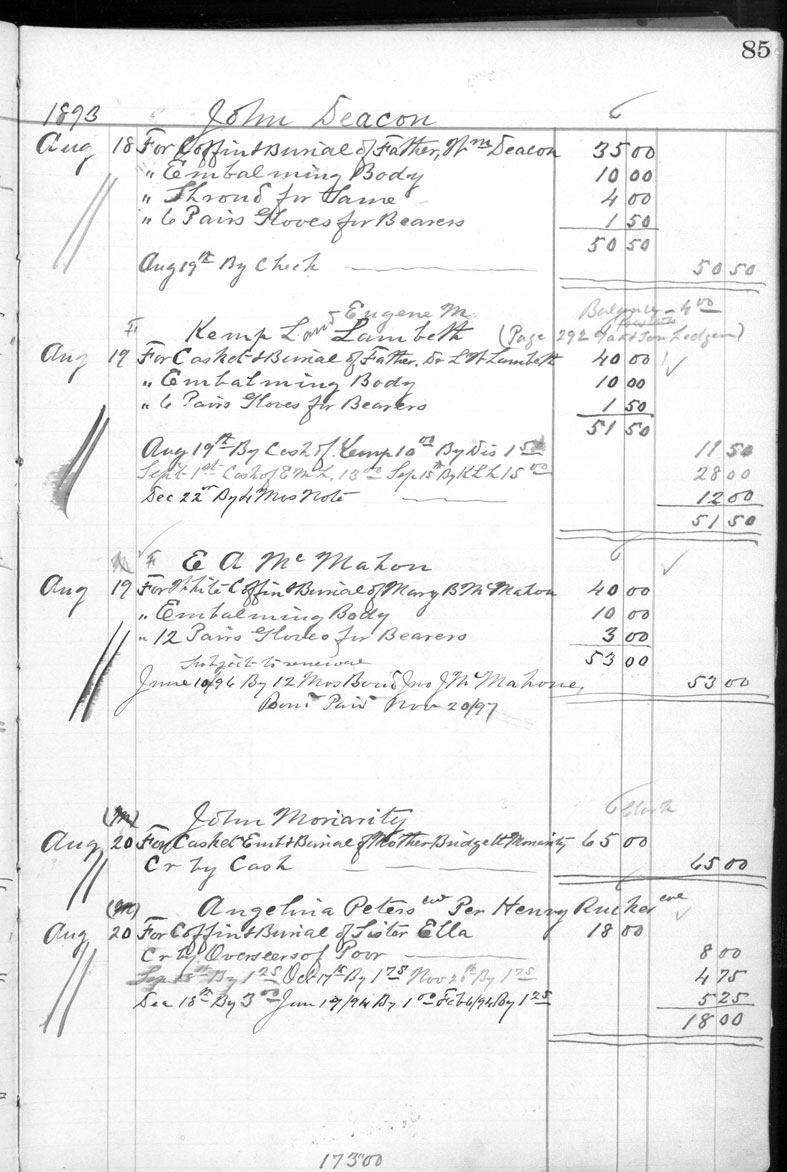 85
1893 John Deacon
Aug 18 For Coffin & Burial of Father, Wm Deacon 35 00
" Embalming Body 10 00
" Shroud for Same 4 00
" 6 Pairs Gloves for Bearers 1 50
50 50
Aug 19th By Check 50 50
Eugene M. Balance - 4 00
Kemp L and Lambeth (Page 292 Ledger)
Aug 19 For Casket & Burial of Father, Dr L W Lambeth 40 00
" Embalming Body 10 00
" 6 Pairs Gloves for Bearers 1 50
51 50
Aug 19th By Cash of Kemp 10 00 By Dis 1 50 11 50
Sept 1st Cash of E M L. 13 00 Sep 15th By K L L 15 00 28 00
Dec 22nd By 4 Mos Note 12 00
51 50
E A Mc Mahon
Aug 19 For White Coffin & Burial of Mary B McMahon 40 00
" Embalming Body 10 00
" 12 Pairs Gloves for Bearers 3 00
53 00
Subject to renewal
June 10/96 By 12 Mos Bond Jno J McMahone, 53 00
Bond Paid Nov 20/97
(M) John Moriarity
Aug 20 For Casket Emb & Burial of Mother Bridgett Moriarity 65 00
Cr by Cash 65 00
(M) Angelina Peters cw Per Henry Rucker col
Aug 20 For Coffin & Burial of Sister Ella 18 00
Cr by Overseers of Poor 8 00
Sep 18th By 1 25 Oct 17th By 1 75 Nov 20th By 1 75 4 75
Dec 18th By 3 00 Jan 17/94 By 1 00 Feb 6/94 By 1 25 5 25
18 00
173 00